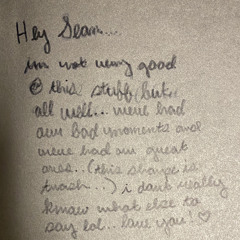 Hey Sean...
im not very good
@ this stuff, but..
all well... weve had
our bad moments and
weve had our great
ones.. (this sharpie is
trash...) i dont really
know what else to
say lol... love you! ♡